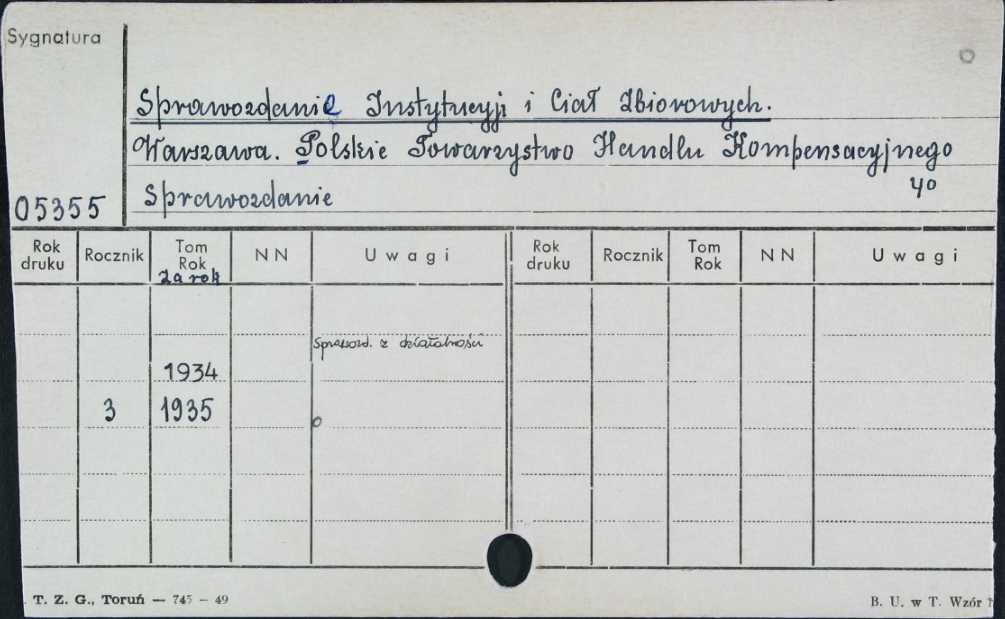 Sygnatura
Sprawozdanie Instytucyj i Ciał Zbiorowych.
Warszawa. Polskie Towarzystwo Handlu Kompensacyjnego
40
05355 Sprawozdanie
Rok druku Rocznik Tom Rok za rok NN Uwagi Rok druku Rocznik Tom Rok NN Uwagi
Sprawozd. z działalności
1934
3 1935 o
T. Z. G., Toruń — 745 – 49 B. U. w T. Wzór